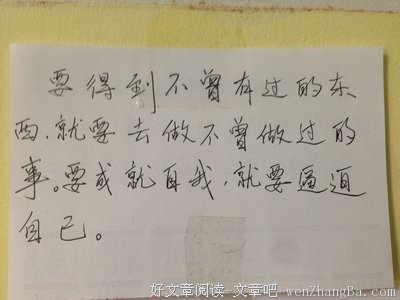 要得到不曾有过的东
西，就要去做不曾做过的
事。要成就自我，就要逼迫
自己。
好文章阅读-文章吧 wenZhangBa.com